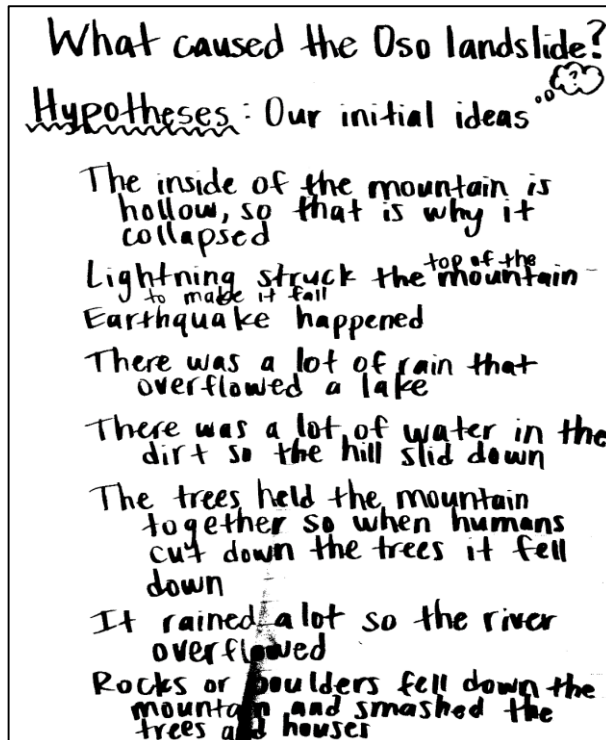 What caused the Oso landslide?
?
Hypotheses: Our initial ideas
The inside of the mountain is
hollow, so that is why it
collapsed
Lightning struck the top of the mountain
to make it fall
Earthquake happened
There was a lot of rain that
overflowed a lake
There was a lot of water in the
dirt so the hill slid down
The trees held the mountain
together so when humans
cut down the trees it fell
down
It rained a lot so the river
overflowed
Rocks or boulders fell down the
mountain and smashed the
trees and houses